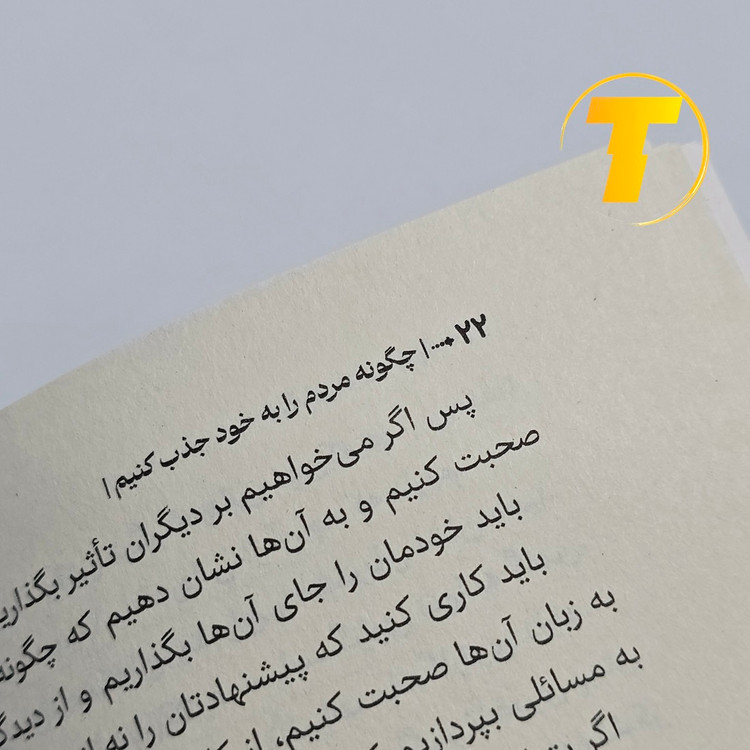 T
۲۲ ۰۰۰۰ | چگونه مردم را به خود جذب کنیم |
پس اگر می‌خواهیم بر دیگران تأثیر بگذاریم
صحبت کنیم و به آن‌ها نشان دهیم که چگونه
باید خودمان را جای آن‌ها بگذاریم و از
باید کاری کنید که پیشنهادتان را نه
به زبان آن‌ها صحبت کنیم، از
به مسائلی بپردازیم
اگر